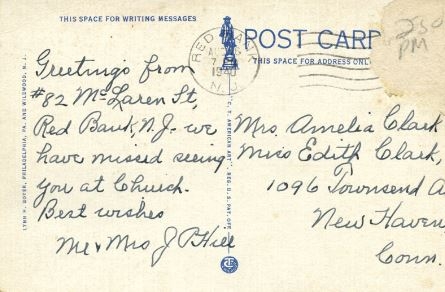 THIS SPACE FOR WRITING MESSAGES
POST CARD
THIS SPACE FOR ADDRESS ONL
RED BANK
1940
N. J.
250
PM
Greetings from
#82 McLaren St,
Red Bank, N.J. we
have missed seeing
you at Church.
Best wishes
Mr & Mrs J P Hill
Mrs. Amelia Clark
Miss Edith Clark,
1096 Townsend A
New Haven
Conn.
LYNN H. BOYER, PHILADELPHIA, PA. AND WILDWOOD, N. J.
"C. T. AMERICAN ART" REG. U.S. PAT. OFF.